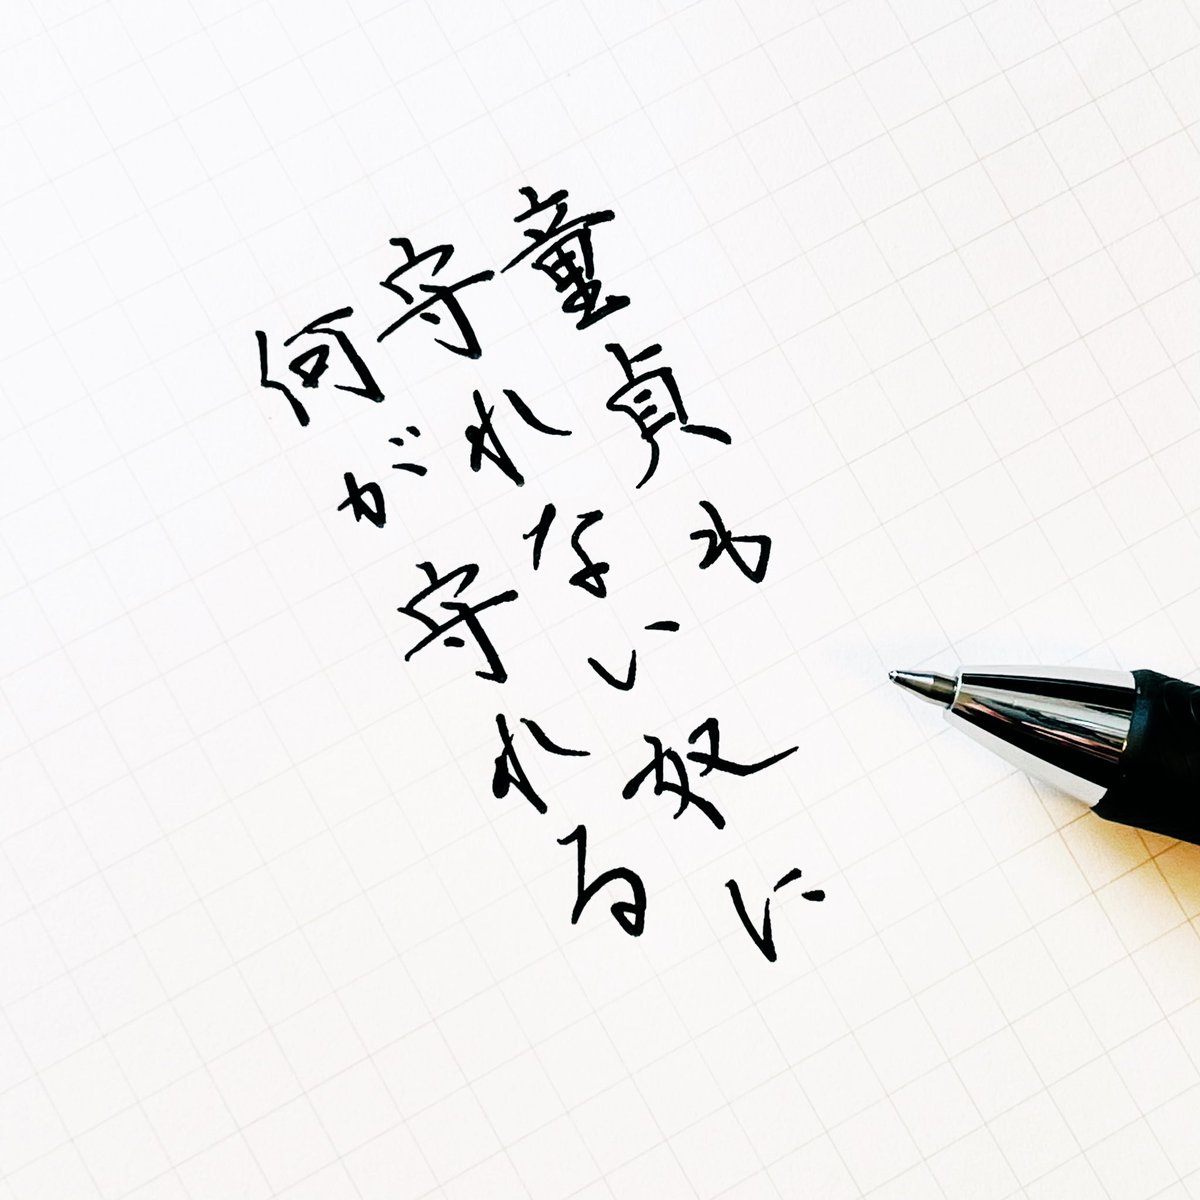 童貞も
守れない奴に
何が守れる